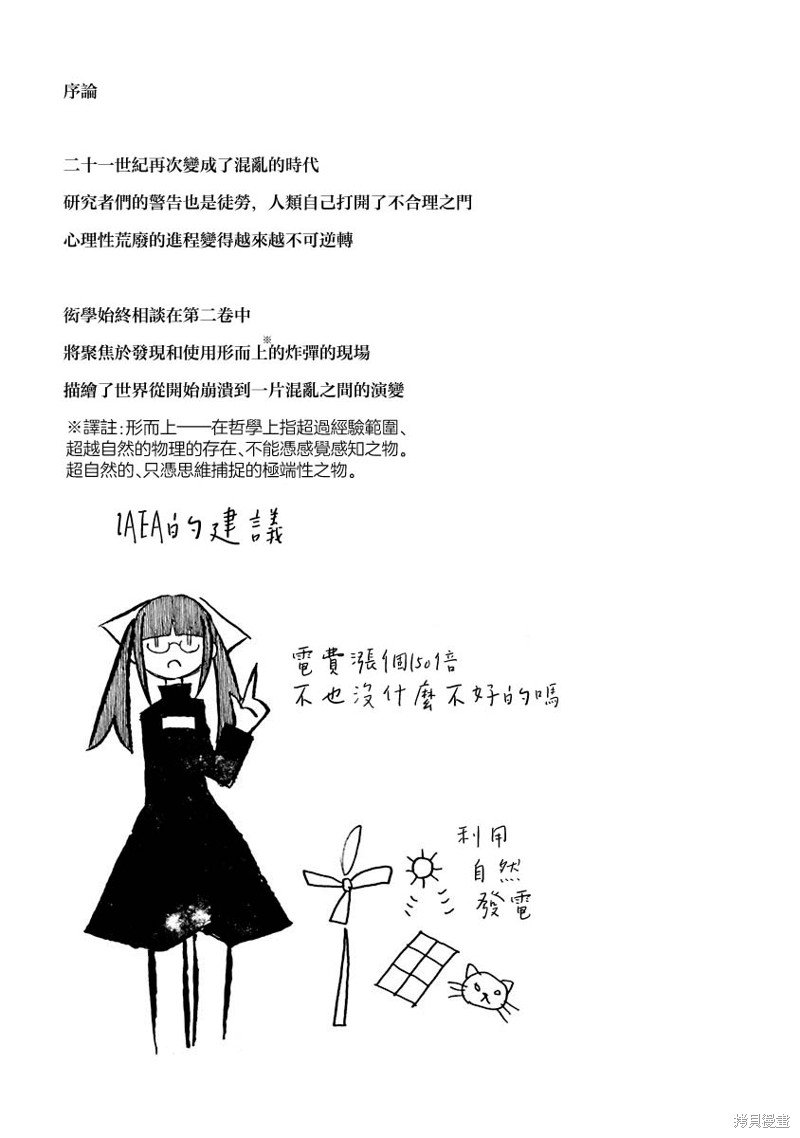 序論
二十一世紀再次變成了混亂的時代
研究者們的警告也是徒勞，人類自己打開了不合理之門
心理性荒廢的進程變得越來越不可逆轉
衒學始終相談在第二卷中
將聚焦於發現和使用形而上※的炸彈的現場
描繪了世界從開始崩潰到一片混亂之間的演變
※譯註：形而上——在哲學上指超過經驗範圍、
超越自然的物理的存在、不能憑感覺感知之物。
超自然的、只憑思維捕捉的極端性之物。
IAEA的建議
電費漲個150倍
不也沒什麼不好的嗎
利用
自然
發電
拷貝漫畫